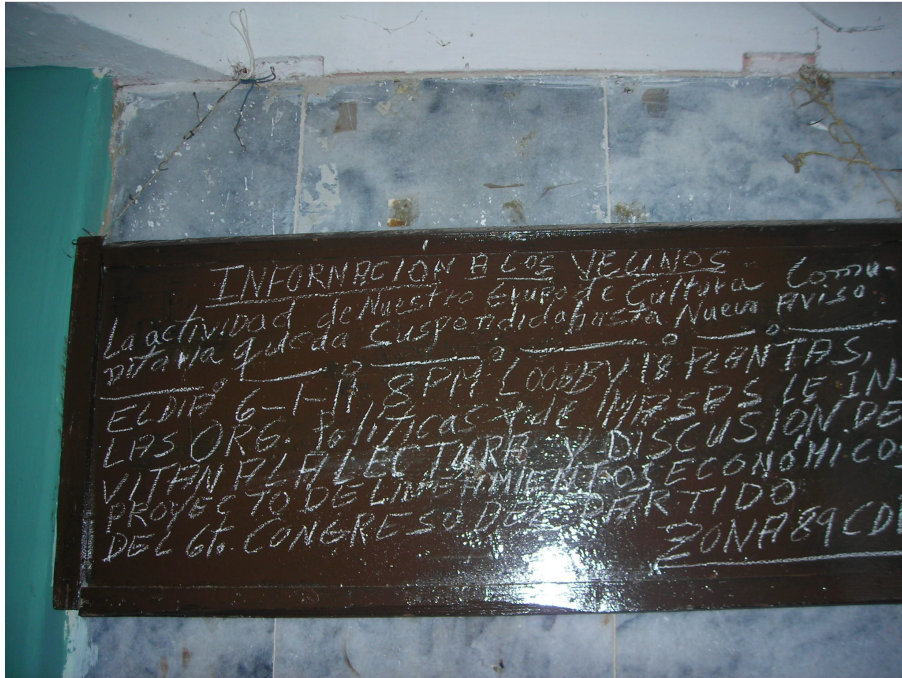 INFORMACION A LOS VECINOS
La actividad de Nuestro Grupo de Cultura Comu-
nitaria queda Suspendida hasta Nuevo Aviso.
EL DIA 6-1-11 8 PM LOOBBY 18 PLANTAS,
LAS ORG. Políticas y de MASAS LE IN-
VITAN A LA LECTURA Y DISCUSION DE
PROYECTO DE LINEAMIENTOS ECONOMICOS
DEL 6to. CONGRESO DEL PARTIDO
ZONA 89 CD